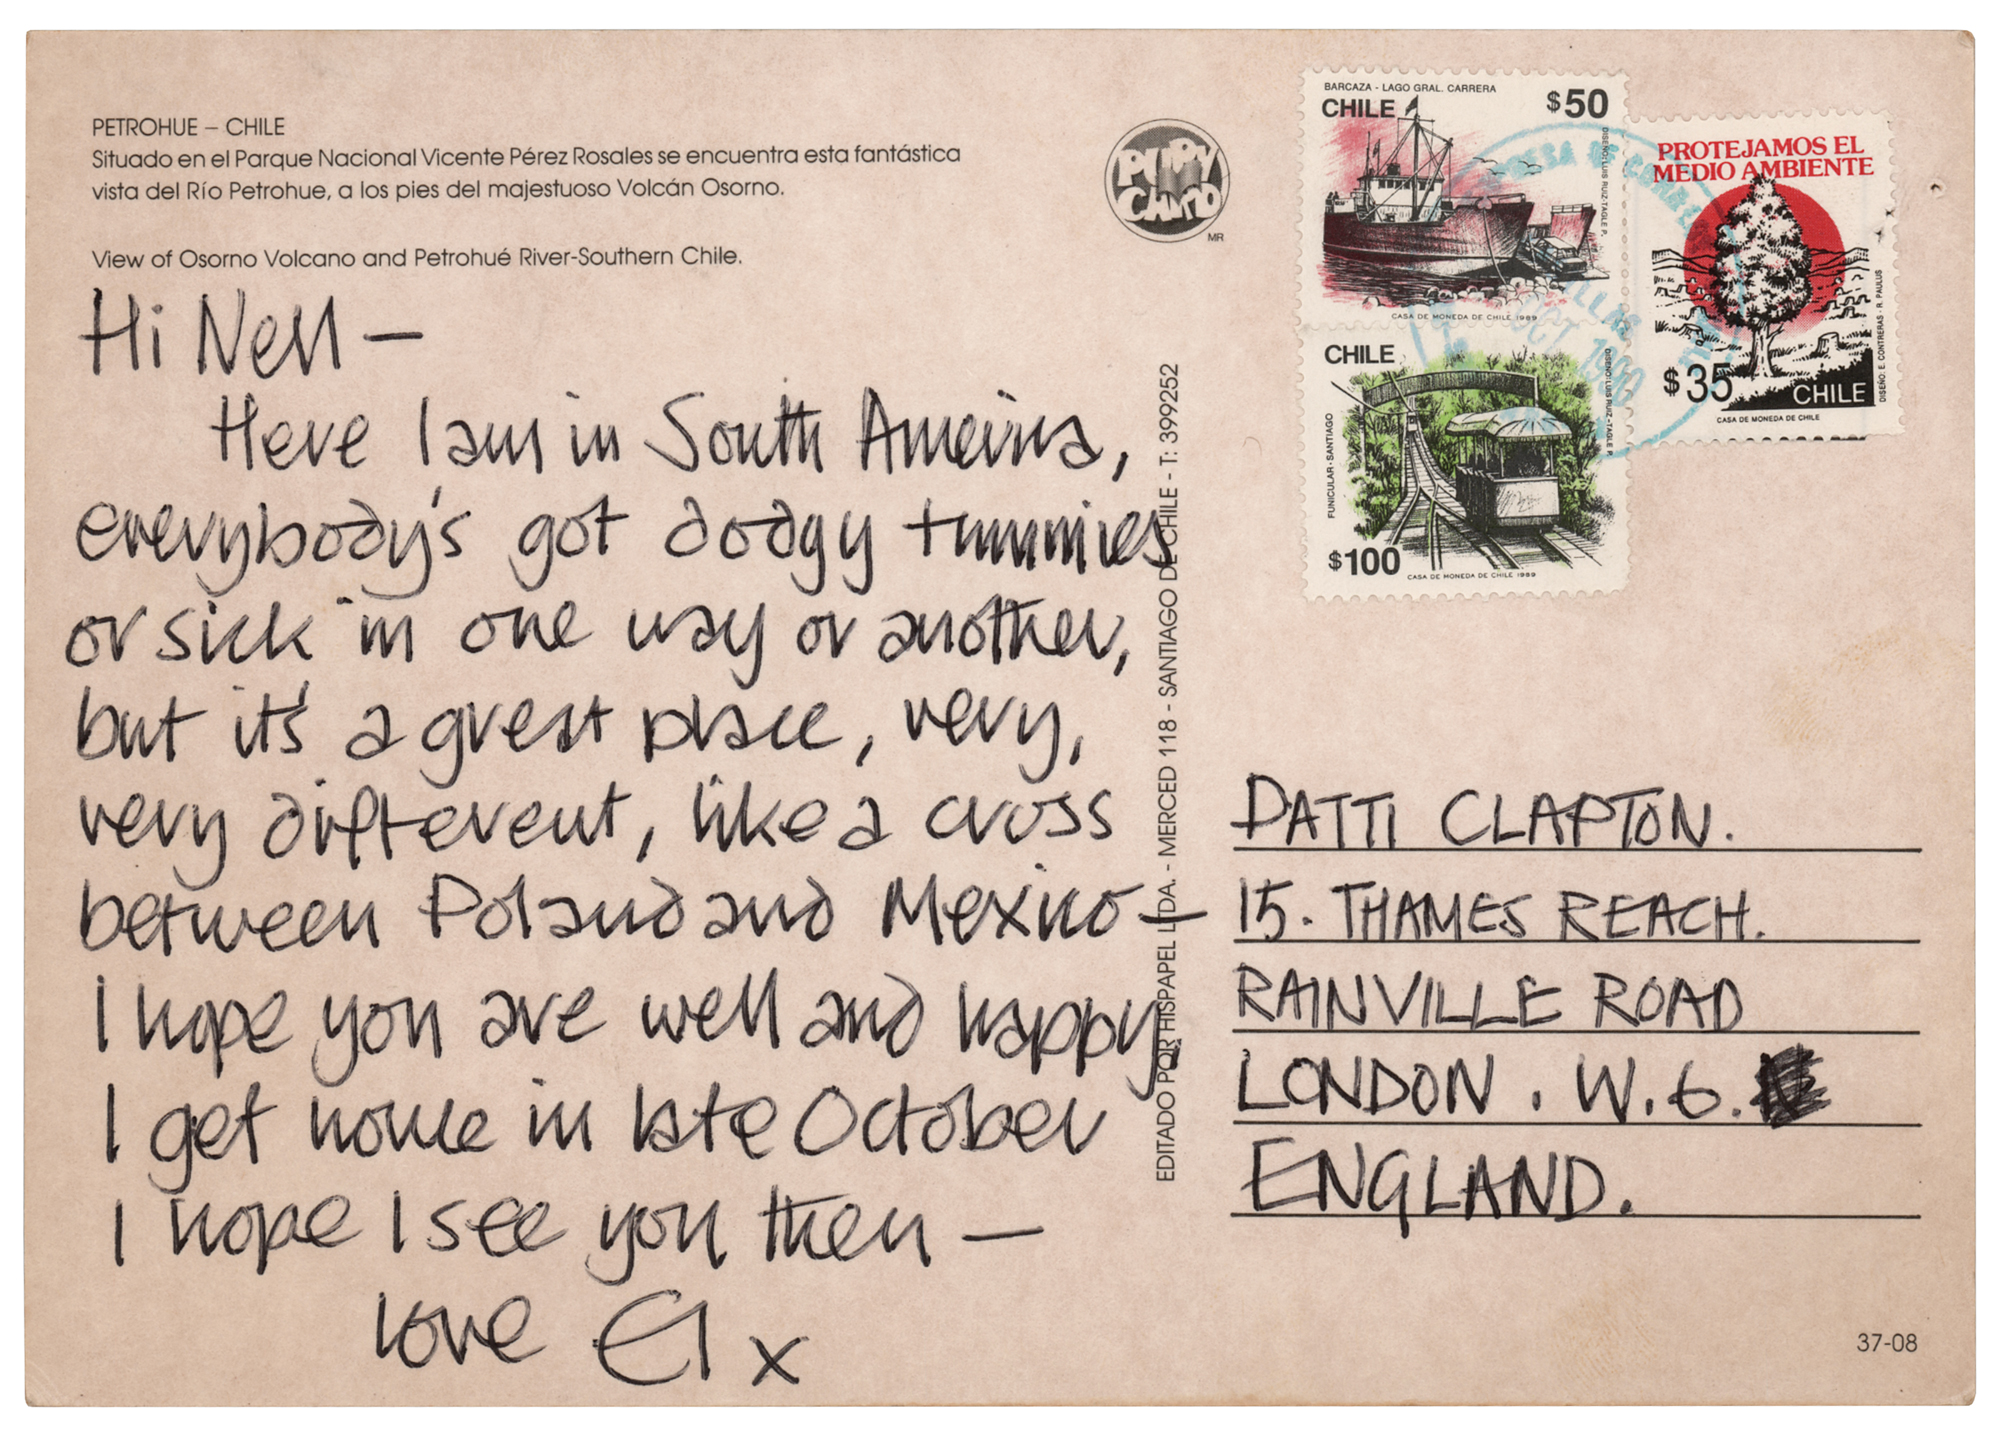 PETROHUE – CHILE
Situado en el Parque Nacional Vicente Pérez Rosales se encuentra esta fantástica
vista del Río Petrohue, a los pies del majestuoso Volcán Osorno.
View of Osorno Volcano and Petrohué River-Southern Chile.
Hi Nell –
Here I am in South America,
everybody's got dodgy tummies
or sick in one way or another,
but it's a great place, very,
very different, like a cross
between Poland and Mexico –
I hope you are well and happy,
I get home in late October
I hope I see you then –
love El x
MR
EDITADO POR HISPAPEL LTDA. - MERCED 118 - SANTIAGO DE CHILE - T: 399252
BARCAZA - LAGO GRAL. CARRERA
CHILE $50
DISEÑO: LUIS RUIZ-TAGLE P.
CASA DE MONEDA DE CHILE 1989
CHILE
FUNICULAR - SANTIAGO
DISEÑO: LUIS RUIZ-TAGLE P.
$100
CASA DE MONEDA DE CHILE 1989
PROTEJAMOS EL
MEDIO AMBIENTE
$35 CHILE
DISEÑO: E. CONTRERAS - R. PAULUS
CASA DE MONEDA DE CHILE
OCT 1990
PATTI CLAPTON.
15. THAMES REACH.
RAINVILLE ROAD
LONDON. W.6.
ENGLAND.
37-08